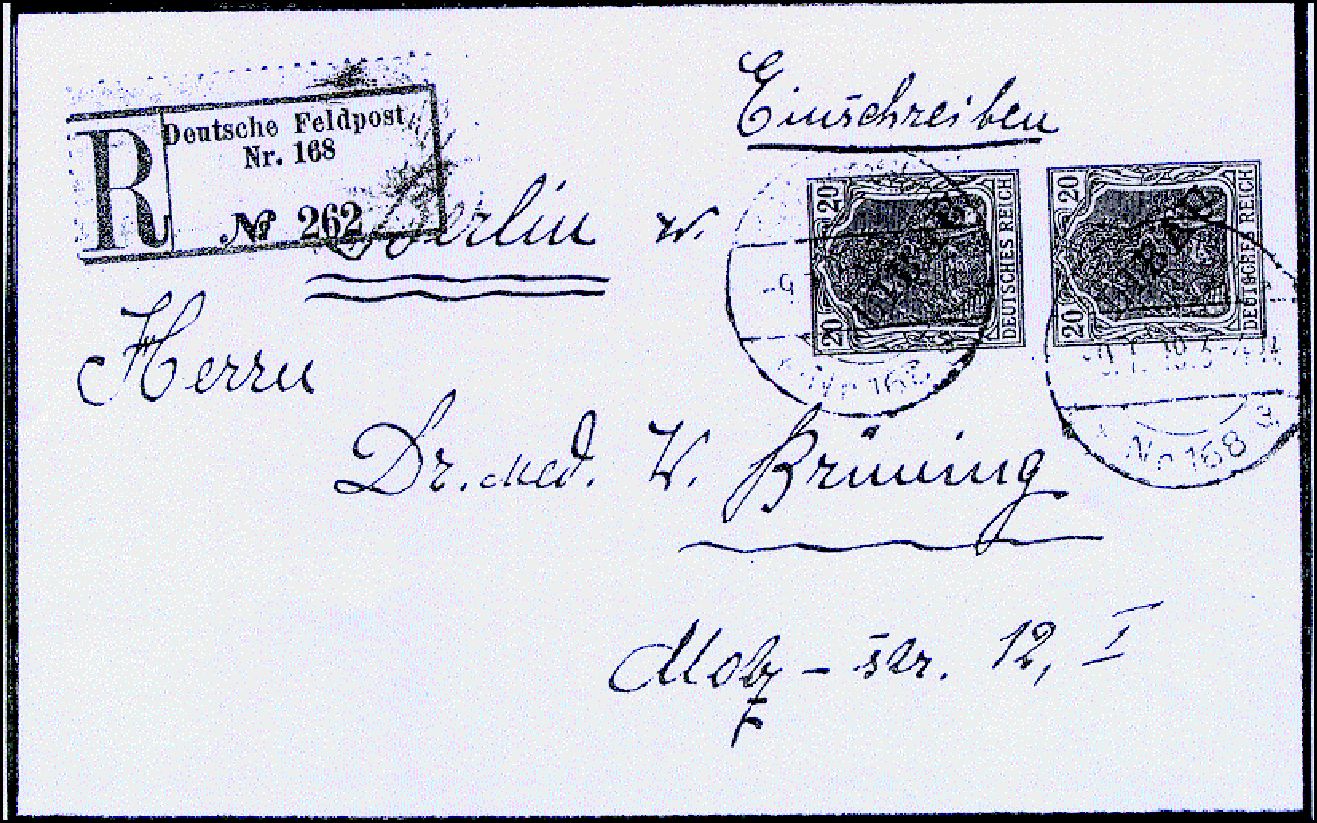 Einschreiben
R Deutsche Feldpost
Nr. 168
№ 262
Berlin W.
20 20 DEUTSCHES REICH
20 20 DEUTSCHES REICH
Nr 168
Nr 168 a
Herrn
Dr. med. W. Brüning
Motz-str. 12, I